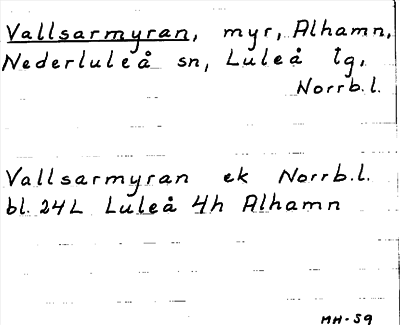 Vallsarmyran, myr, Alhamn,
Nederluleå sn, Luleå tg,
Norrb.l.
Vallsarmyran ek Norrb.l.
bl. 24L Luleå 4h Alhamn
MH-59